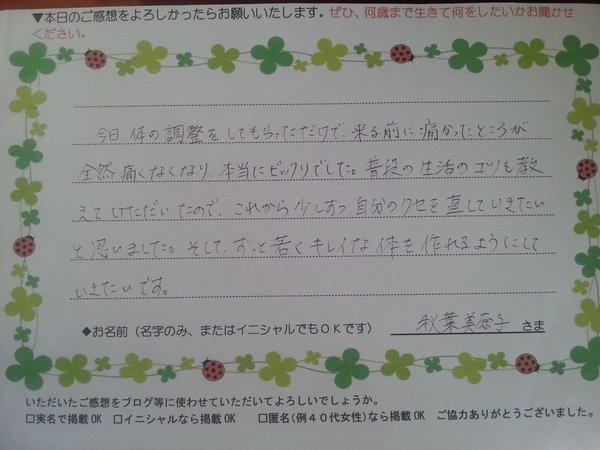 ▼本日のご感想をよろしかったらお願いいたします。ぜひ、何歳まで生きて何をしたいかお聞かせ
ください。
今日、体の調整をしてもらっただけで、来る前に痛かったところが
全然痛くなくなり、本当にビックリでした。普段の生活のコツも教
えていただいたので、これから少しずつ自分のクセを直していきたい
と思いました。そして、ずっと若くキレイな体を作れるようにして
いきたいです。
◆お名前（名字のみ、またはイニシャルでもＯＫです） 秋葉美奈子 さま
いただいたご感想をブログ等に使わせていただいてよろしいでしょうか。
□実名で掲載 OK □イニシャルなら掲載 OK □匿名(例４０代女性)なら掲載 OK ご協力ありがとうございました。